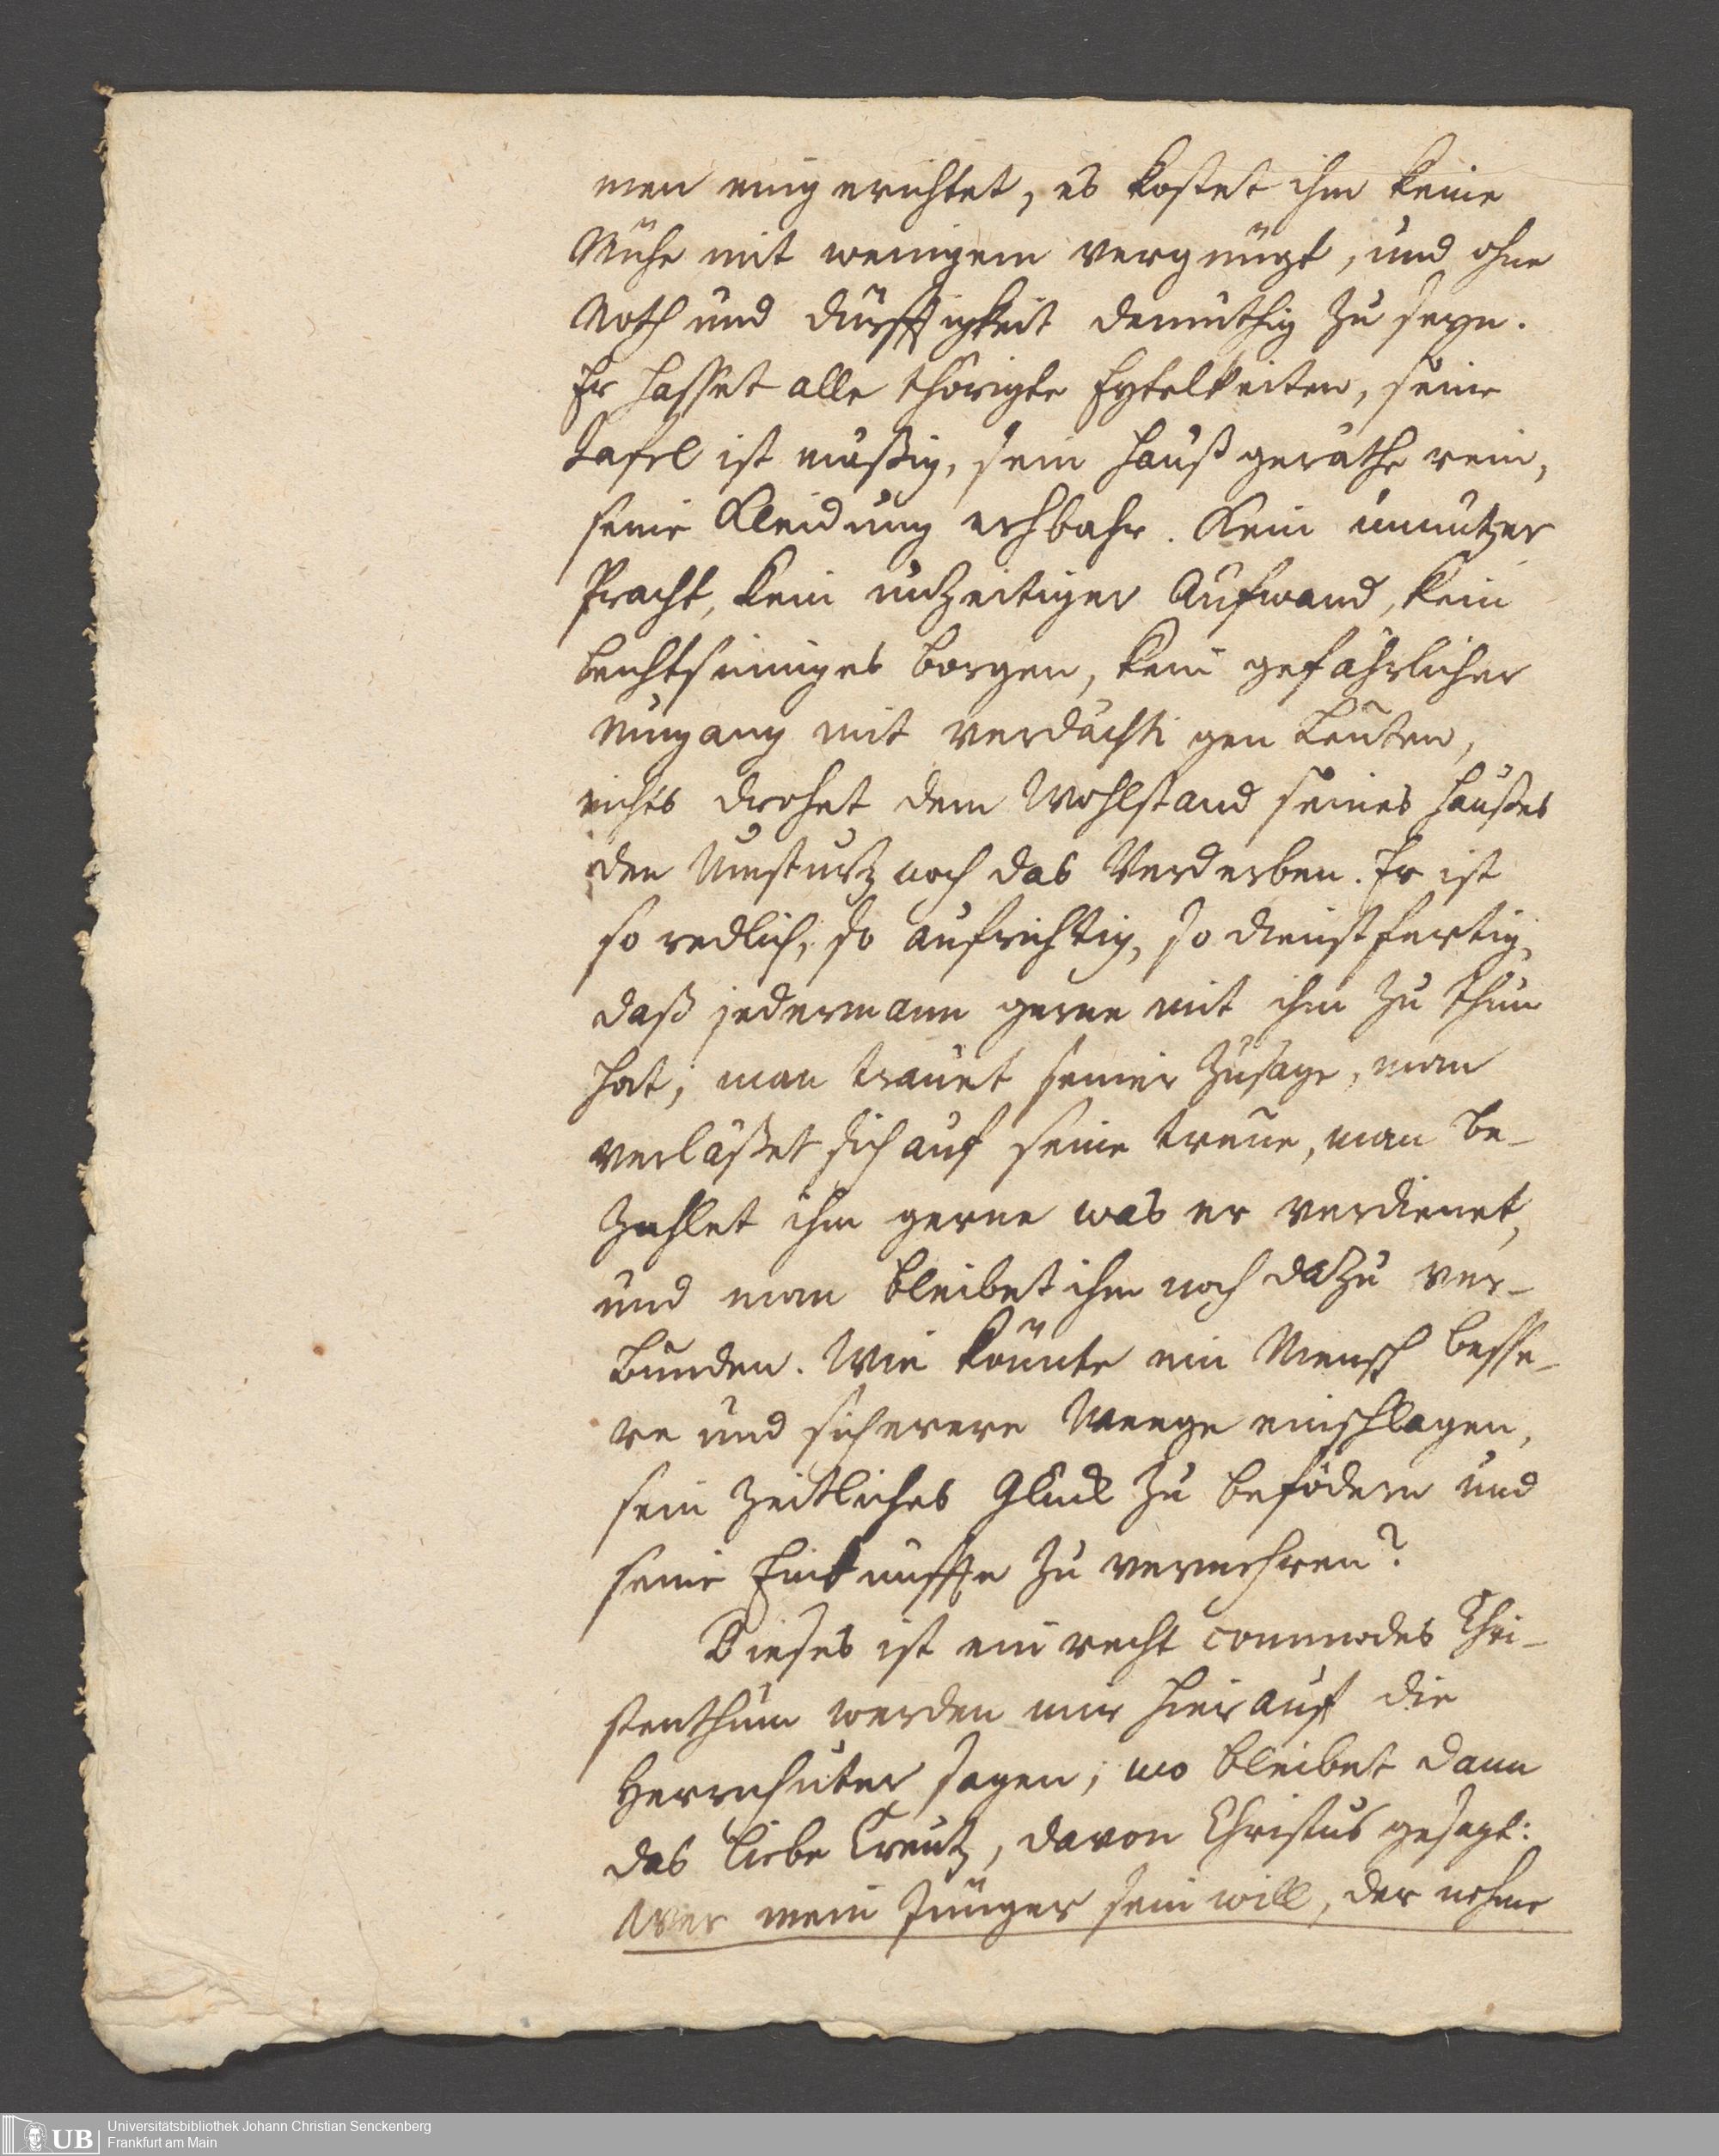 men eingerichtet, es kostet ihm keine
Mühe mit wenigem vergnügt, und ohne
Noth und Dürfftigkeit demüthig zu seyn.
Er hasset alle thörigte Eytelkeiten, seine
Tafel ist mäßig, sein Haußgeräthe rein,
seine Kleidung erhbahr. Kein unnutzer
Pracht, kein unzeitiger Aufwand, kein
leichtsinniges borgen, kein gefährlicher
Umgang mit verdächtigen Leuten,
nichts drohet dem Wohlstand seines Haußes
den Umsturtz noch das Verderben. Er ist
so redlich, so aufrichtig, so dienstfertig,
daß jedermann gerne mit ihm zu thun
hat; man trauet seiner Zusage, man
verläßet sich auf seine treue, man be-
zahlet ihm gerne was er verdienet,
und man bleibet ihm noch dazu ver-
bunden. Wie könnte ein Mensch besse-
re und sicherere Weege einschlagen,
sein zeitliches Gluck zu befödern und
seine Einkunffte zu vermehren?
Dieses ist ein recht commodes Chri-
stenthum werden mir hierauf die
Herrnhuter sagen; wo bleibet dann
das liebe Creutz, davon Christus gesagt:
Wer mein Jünger sein will, der nehme
Universitätsbibliothek Johann Christian Senckenberg
UB Frankfurt am Main